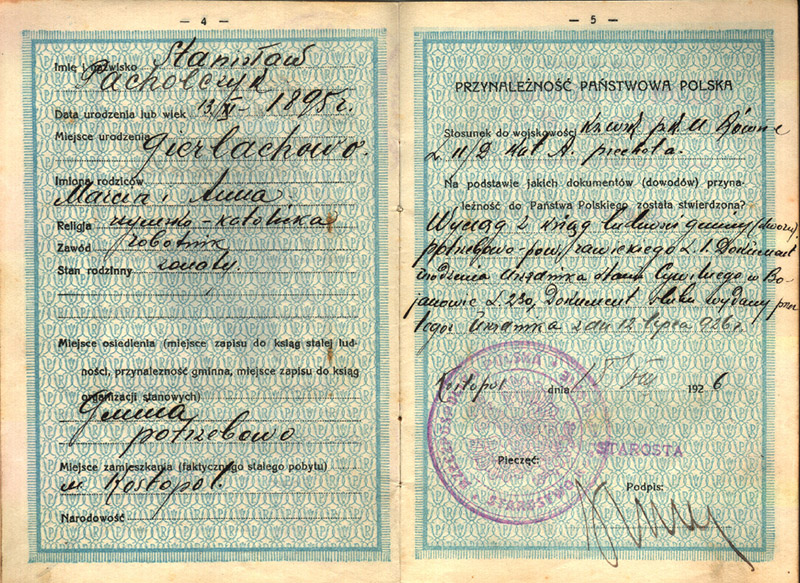 — 4 —
Imię i nazwisko Stanisław
Pacholczyk
Data urodzenia lub wiek 13/XI - 1895 r.
Miejsce urodzenia Gierłachowo
Imiona rodziców
Marcin i Anna
Religja rzymsko-katolicka
Zawód robotnik
Stan rodzinny żonaty.
Miejsce osiedlenia (miejsce zapisu do ksiąg stałej lud-
ności, przynależność gminna, miejsce zapisu do ksiąg
organizacji stanowych)
Gmina
potrzebowo
Miejsce zamieszkania (faktycznego stałego pobytu)
m. Kostopol.
Narodowość
— 5 —
PRZYNALEŻNOŚĆ PAŃSTWOWA POLSKA
Stosunek do wojskowości p.k.u Równe
L 11/2 Kat A. piechota.
Na podstawie jakich dokumentów (dowodów) przyna-
leżność do Państwa Polskiego została stwierdzona?
Wyciąg z ksiąg ludności gminy (dworu)
potrzebowo-pow. rawickiego L. 1. Dokument
urodzenia Urzędnika stanu Cywilnego w Bo-
janowie L. 230, Dokument ślubu wydany przez
tegoż Urzędnika z dn 12 lipca 926 r.
Kostopol dnia VIII 1926
STAROSTA
Pieczęć:
Podpis:
STAROSTWO